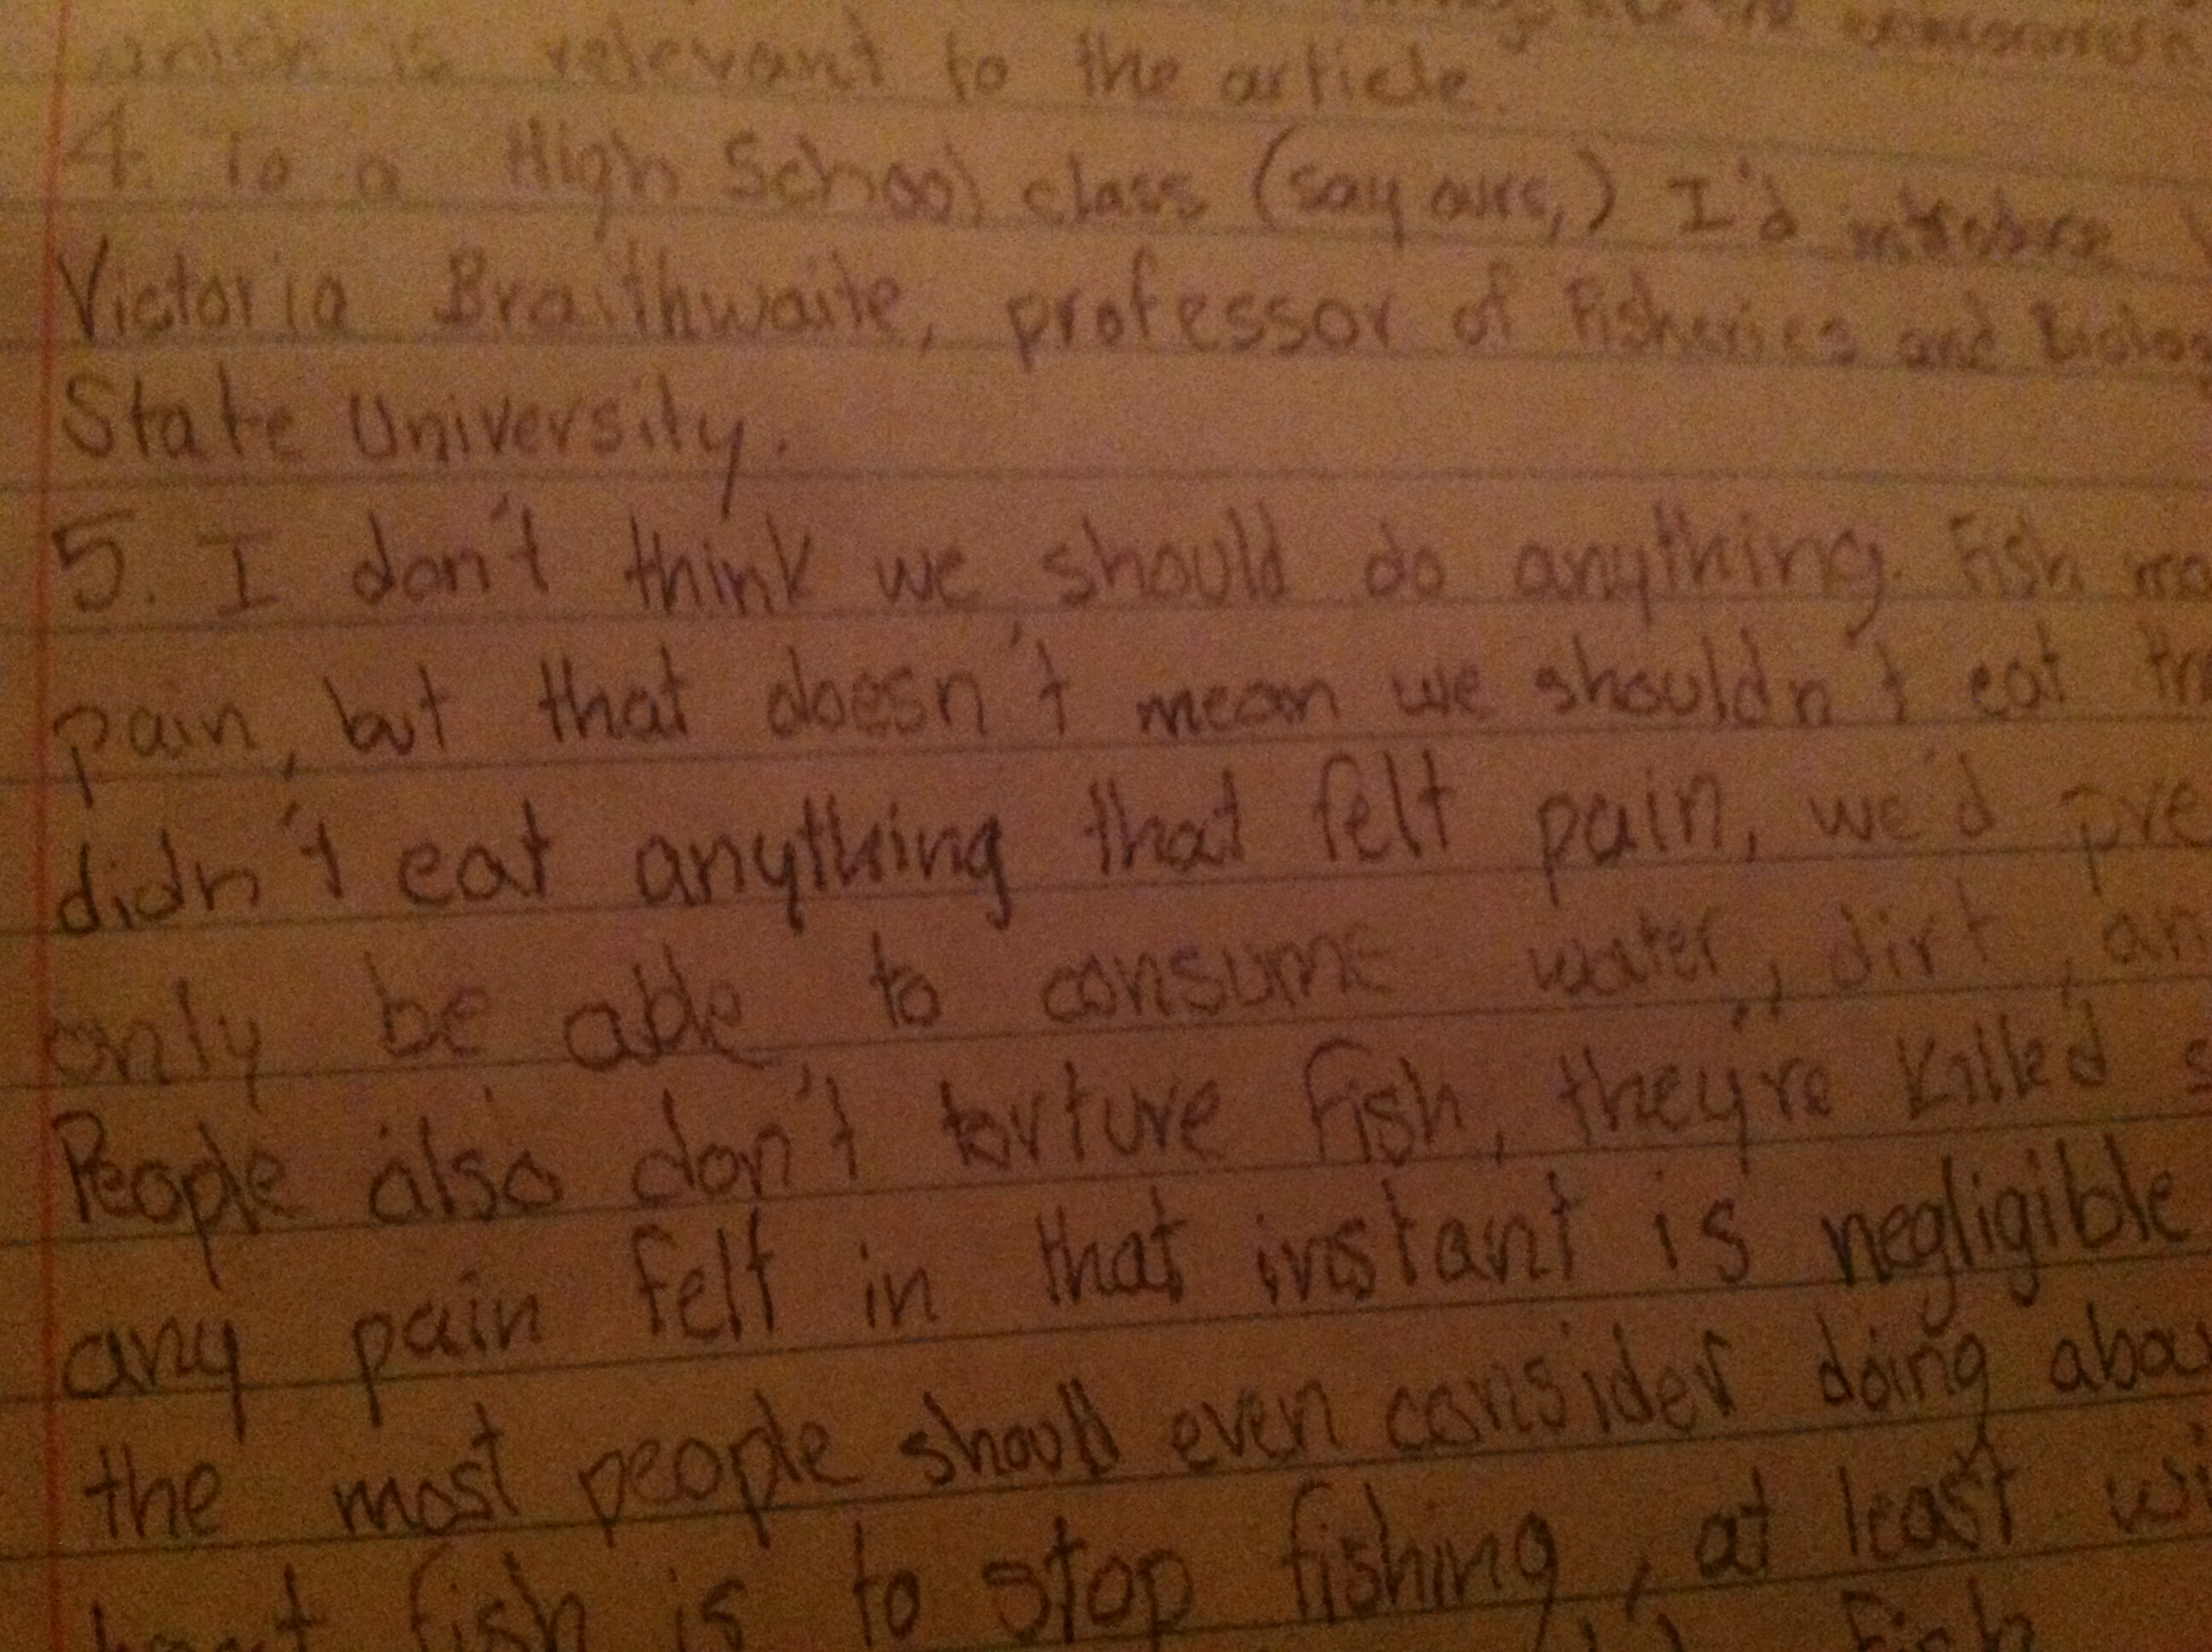 which is relevant to the article.
4. To a High School class (say ours,) I'd introduce
Victoria Braithwaite, professor of Fisheries and
State University.
5. I don't think we should do anything. Fish
pain, but that doesn't mean we shouldn't eat
didn't eat anything that felt pain, we'd
only be able to consume water, dirt,
People also don't torture fish, they're killed
any pain felt in that instant is negligible
the most people should even consider doing
fish is to stop fishing, at least
fish